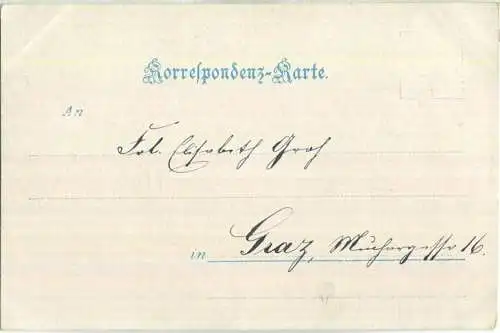 Korrespondenz-Karte.
An
Frl. Elisabeth Graf
in Graz, Muchargasse 16.